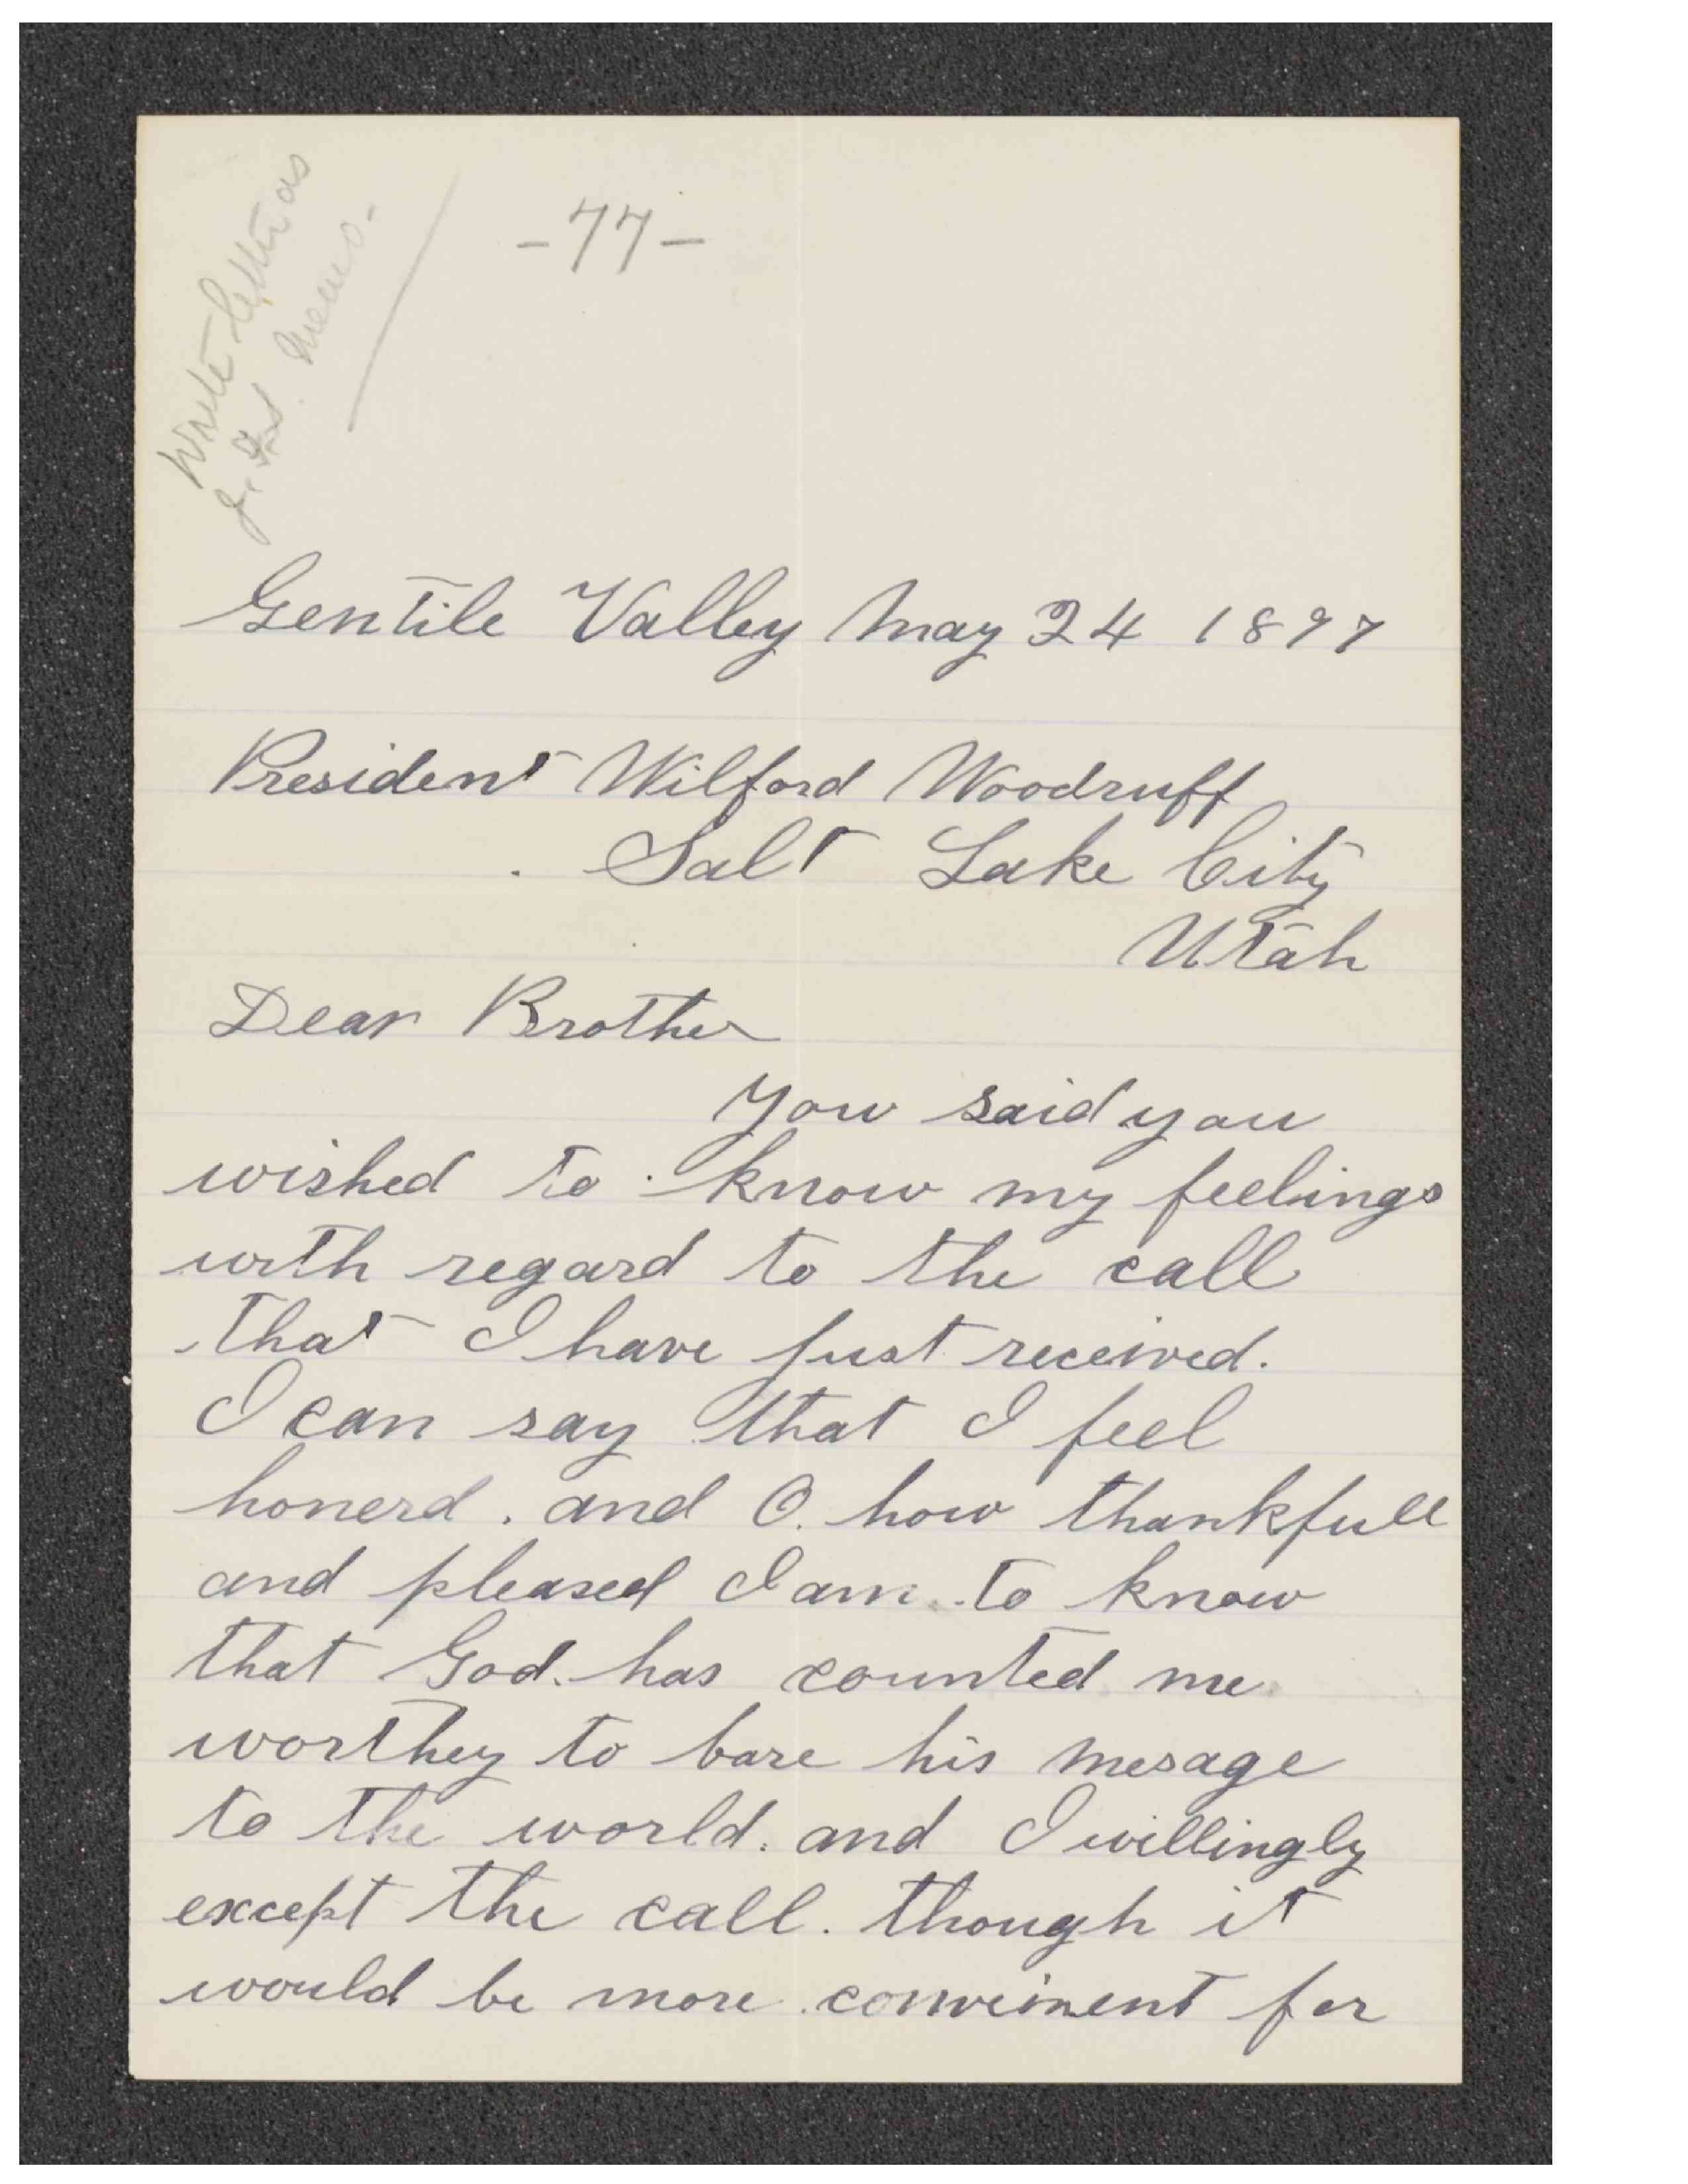 -77-
Write letter as
Gentile Valley May 24 1897
President Wilford Woodruff
Salt Lake City
Utah
Dear Brother
You said you
wished to know my feelings
with regard to the call
that I have just received.
I can say that I feel
honerd. and O. how thankfull
and pleased I am to know
that God. has counted me
worthey to bare his mesage
to the world. and I willingly
except the call. though it
would be more conveinent for